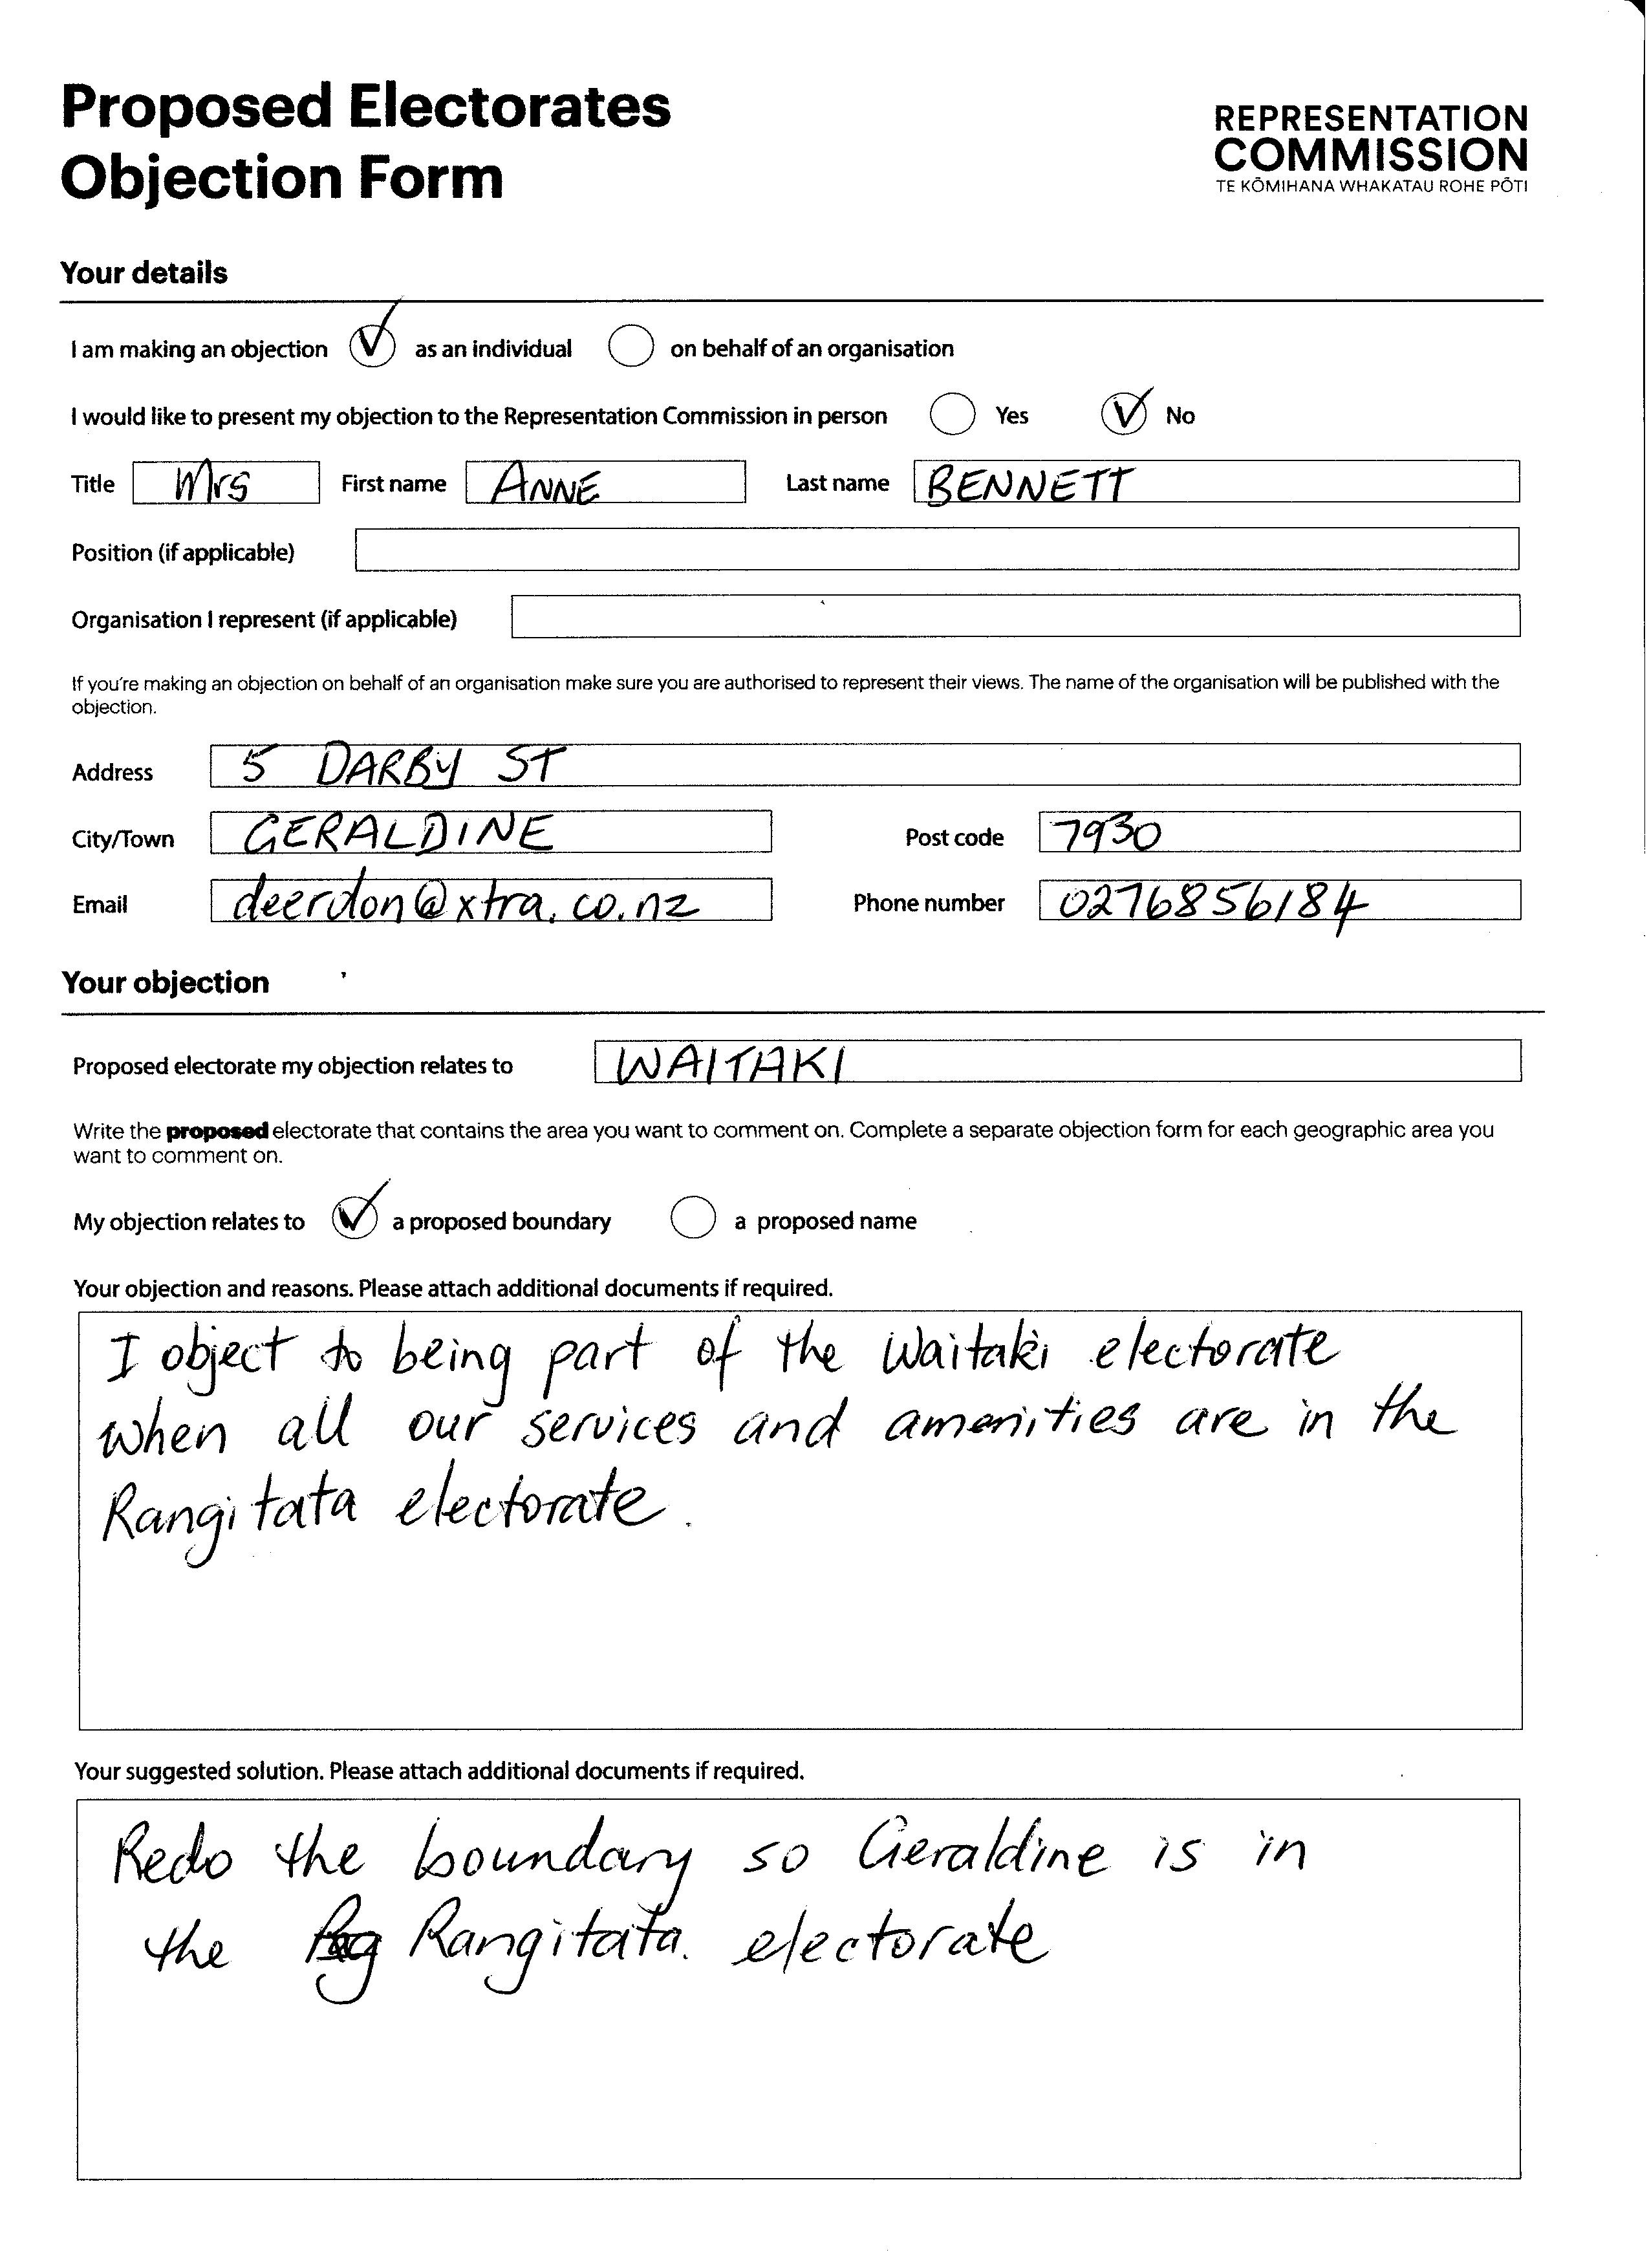 Proposed Electorates
Objection Form
REPRESENTATION
COMMISSION
TE KŌMIHANA WHAKATAU ROHE PŌTI
Your details
I am making an objection as an individual on behalf of an organisation
I would like to present my objection to the Representation Commission in person Yes No
Title Mrs First name ANNE Last name BENNETT
Position (if applicable)
Organisation I represent (if applicable)
If you're making an objection on behalf of an organisation make sure you are authorised to represent their views. The name of the organisation will be published with the
objection.
Address 5 DARBY ST
City/Town GERALDINE Post code 7930
Email deerdon@xtra.co.nz Phone number 0276856184
Your objection
Proposed electorate my objection relates to WAITAKI
Write the proposed electorate that contains the area you want to comment on. Complete a separate objection form for each geographic area you
want to comment on.
My objection relates to a proposed boundary a proposed name
Your objection and reasons. Please attach additional documents if required.
I object to being part of the Waitaki electorate
when all our services and amenities are in the
Rangitata electorate.
Your suggested solution. Please attach additional documents if required.
Redo the boundary so Geraldine is in
the Rangitata. electorate